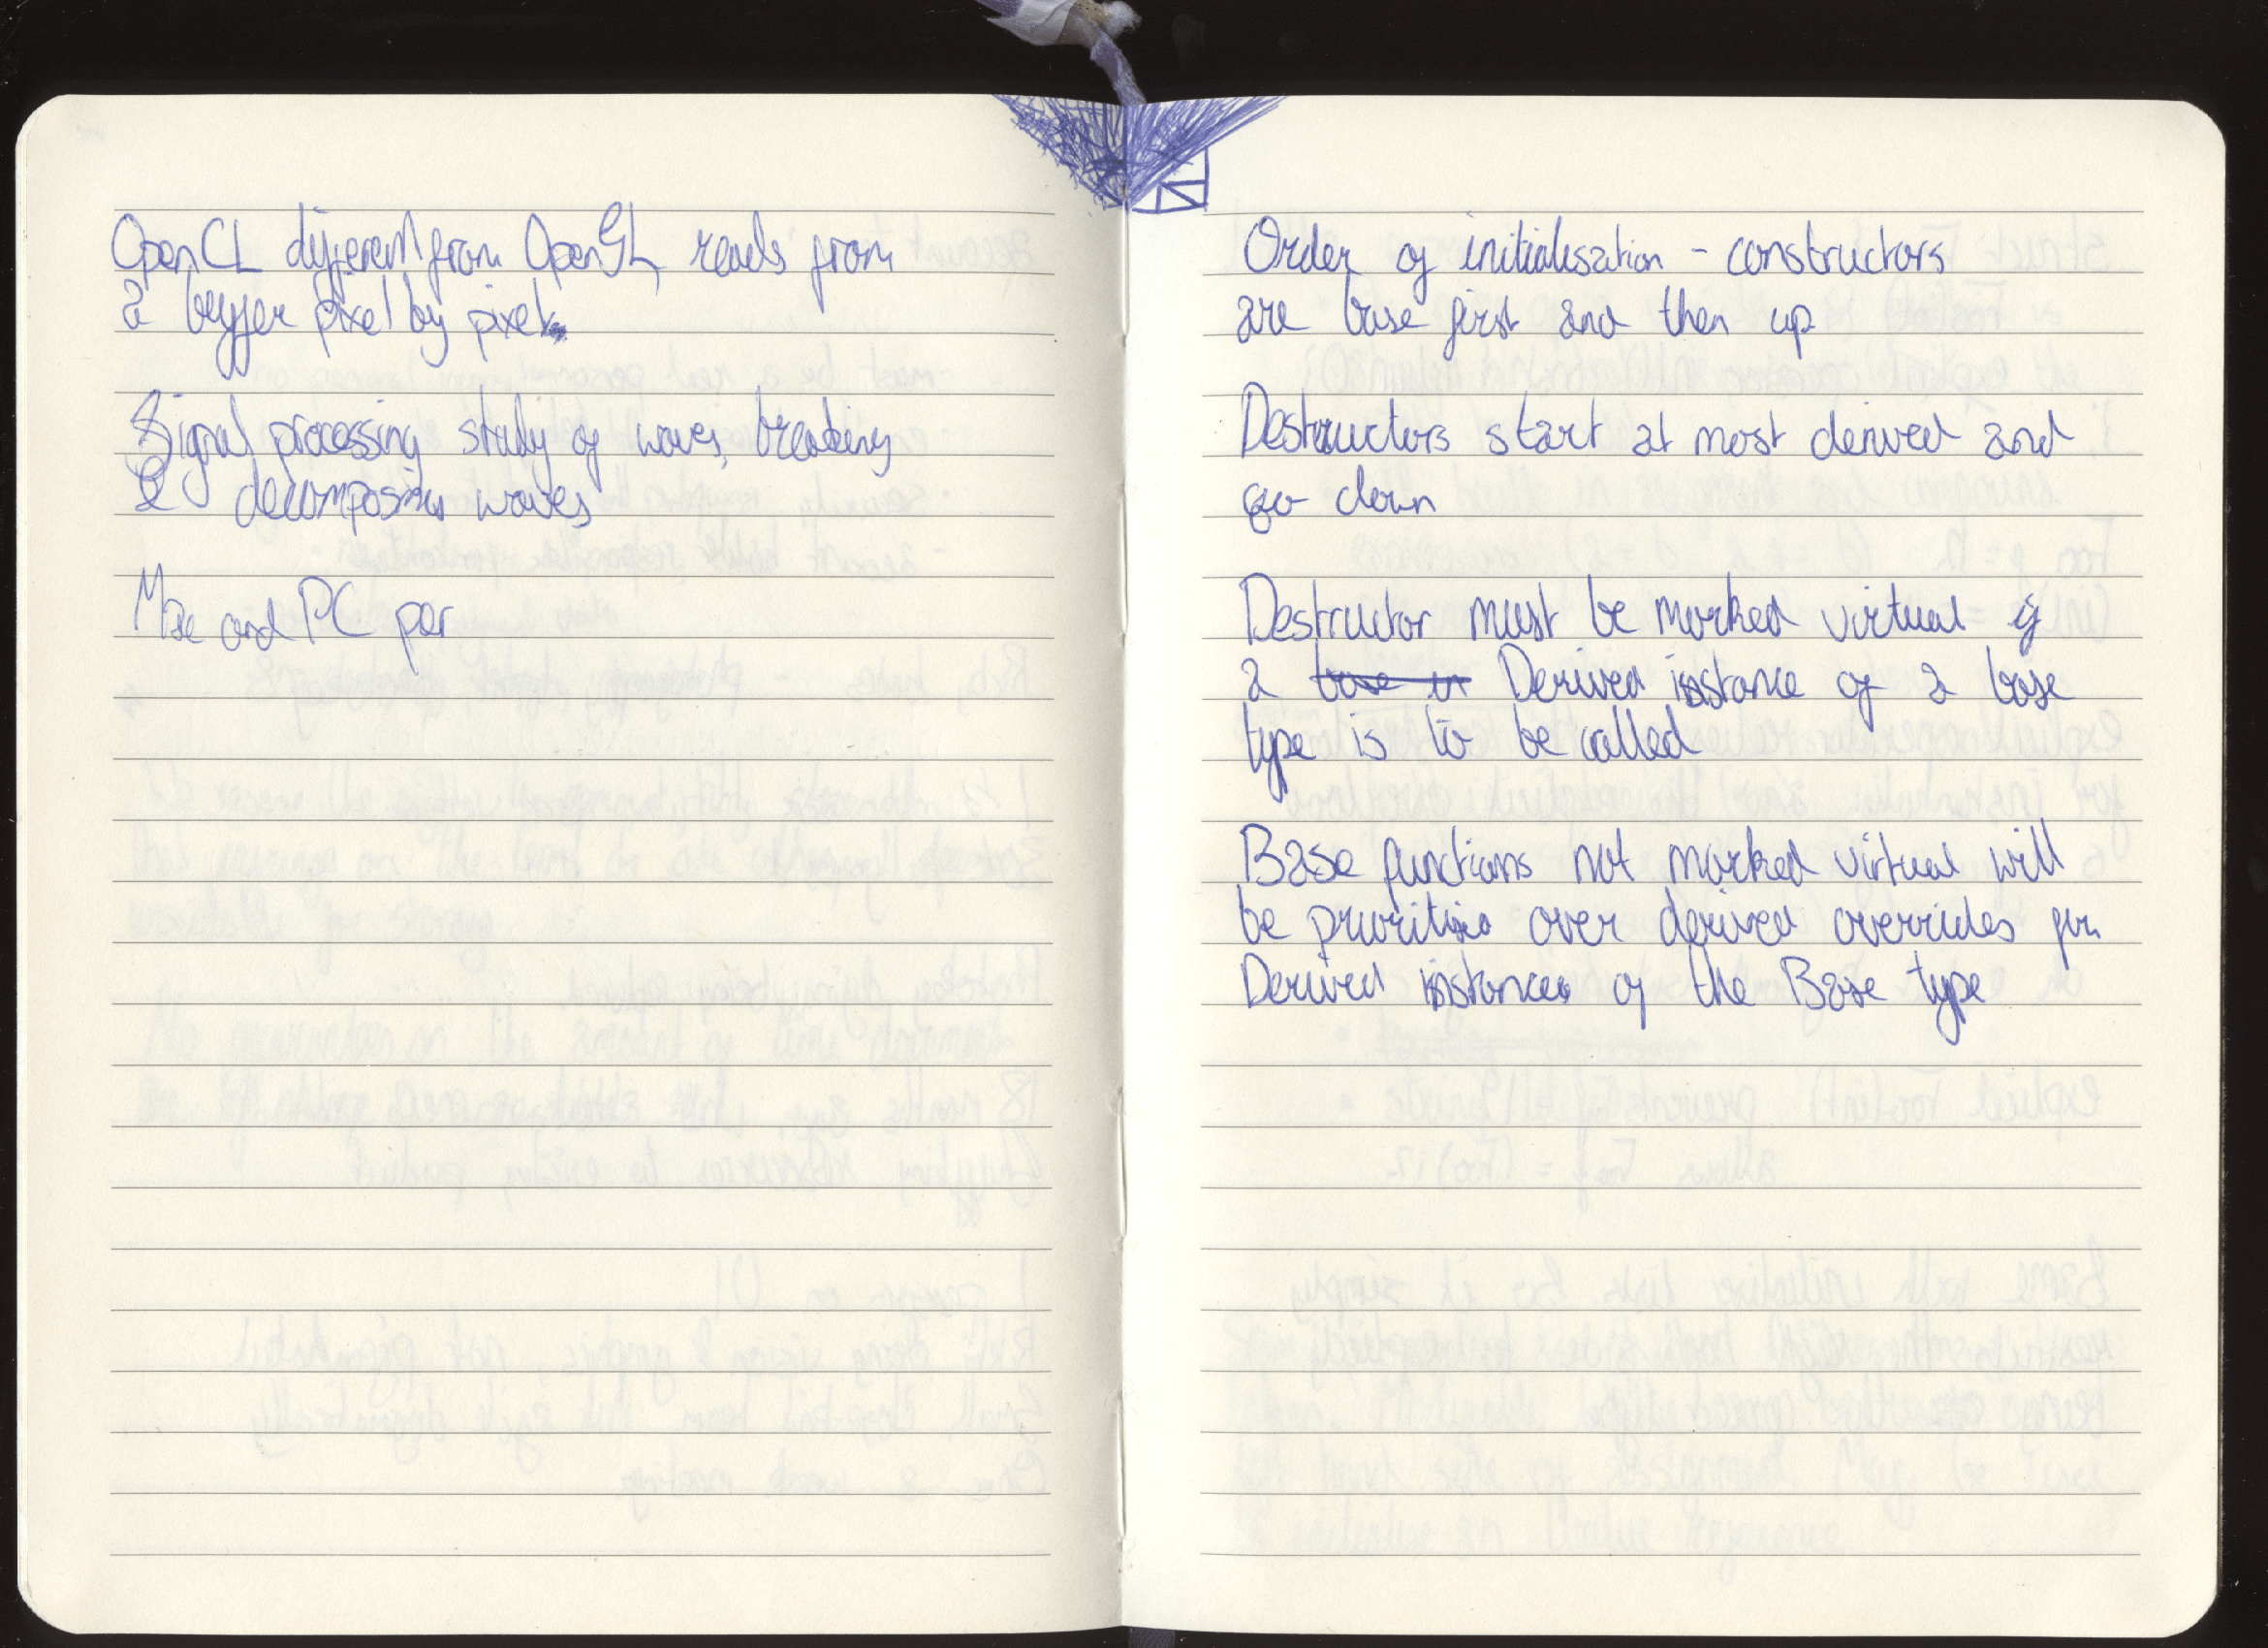 OpenCL different from OpenGL, reads from
a buffer pixel by pixel
Signal processing study of waves, breaking
& decomposing waves
and PC per
Order of initialisation - constructors
are base first and then up
Destructors start at most derived and
go down
Destructor must be marked virtual if
a base in Derived instance of a base
type is to be called
Base functions not marked virtual will
be prioritised over derived overrides for
Derived instances of the Base type